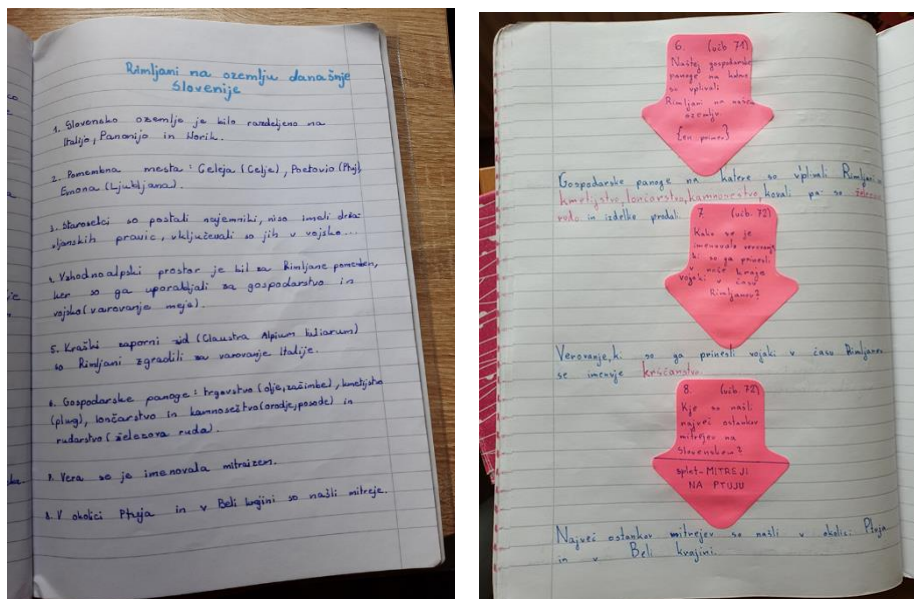 Rimljani na ozemlju današnje
Slovenije
1. Slovensko ozemlje je bilo razdeljeno na
Italijo, Panonijo in Norik.
2. Pomembna mesta: Celeja (Celje), Poetovio (Ptuj),
Emona (Ljubljana).
3. Staroselci so postali najemniki, niso imeli držav-
ljanskih pravic, vključevali so jih v vojsko...
4. Vzhodnoalpski prostor je bil za Rimljane pomemben,
ker so ga uporabljali za gospodarstvo in
vojsko (varovanje meje).
5. Kraški zaporni zid (Claustra Alpium Iuliarum)
so Rimljani zgradili za varovanje Italije.
6. Gospodarske panoge: trgovstvo (olje, začimbe), kmetijstvo
(plug), lončarstvo in kamnoseštvo (orodje, posode) in
rudarstvo (železova ruda).
7. Vera se je imenovala mitraizem.
8. V okolici Ptuja in v Beli krajini so našli mitreje.
6. (učb 71)
Naštej gospodarske
panoge na katere
so vplivali
Rimljani na našem
ozemlju
{en primer}
Gospodarske panoge na katere so vplivali Rimljani so
kmetijstvo, lončarstvo, kamnosestvo, kovali pa so železovo
rudo in izdelke prodali.
7. (učb. 72)
Kako se je
imenovalo verovanje,
ki so ga prinesli
v naše kraje
vojaki v času
Rimljanov?
Verovanje, ki so ga prinesli vojaki v času Rimljanov
se imenuje krščanstvo.
8. (učb. 72)
Kje so našli
največ ostankov
mitrejev na
Slovenskem?
splet-MITREJI
NA PTUJU
Največ ostankov mitrejev so našli v okolici Ptuja
in v Beli krajini.